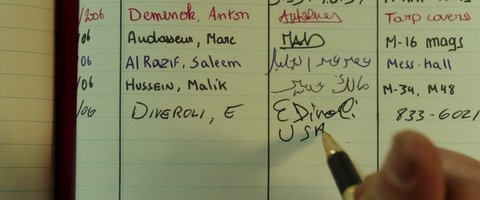 /2006 Demenok, Anton Tarp covers
/06 Audasseur, Marc M-16 mags
/06 Al Razif, Saleem Mess-hall
/06 Hussein, Malik M-34, M48
/06 Diveroli, E EDiveroli 833-6021
USA